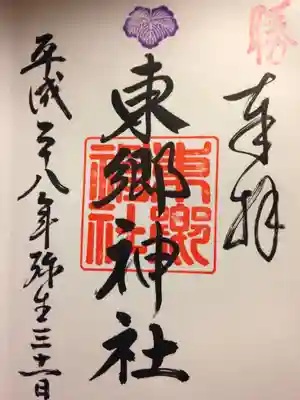 勝
奉拝
東郷神社
東郷神社
平成二十八年弥生三十一日